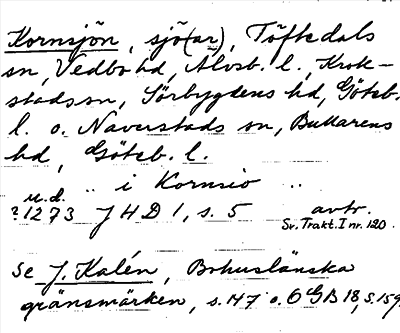 Kornsjön, sjö(ar), Töftedals
sn, Vedbo hd, Älvsb. l., Krok-
stads sn, Sörbygdens hd, Göteb.
l. o. Naverstads sn, Bullarens
hd, Göteb. l.
u.d. ,, i Kornsio ,,
?1273 JHD 1, s. 5 avtr.
Sv. Trakt. I nr. 120.
Se J. Kalén, Bohuslänska
gränsmärken, s. 147 o. OGB 18, s. 159